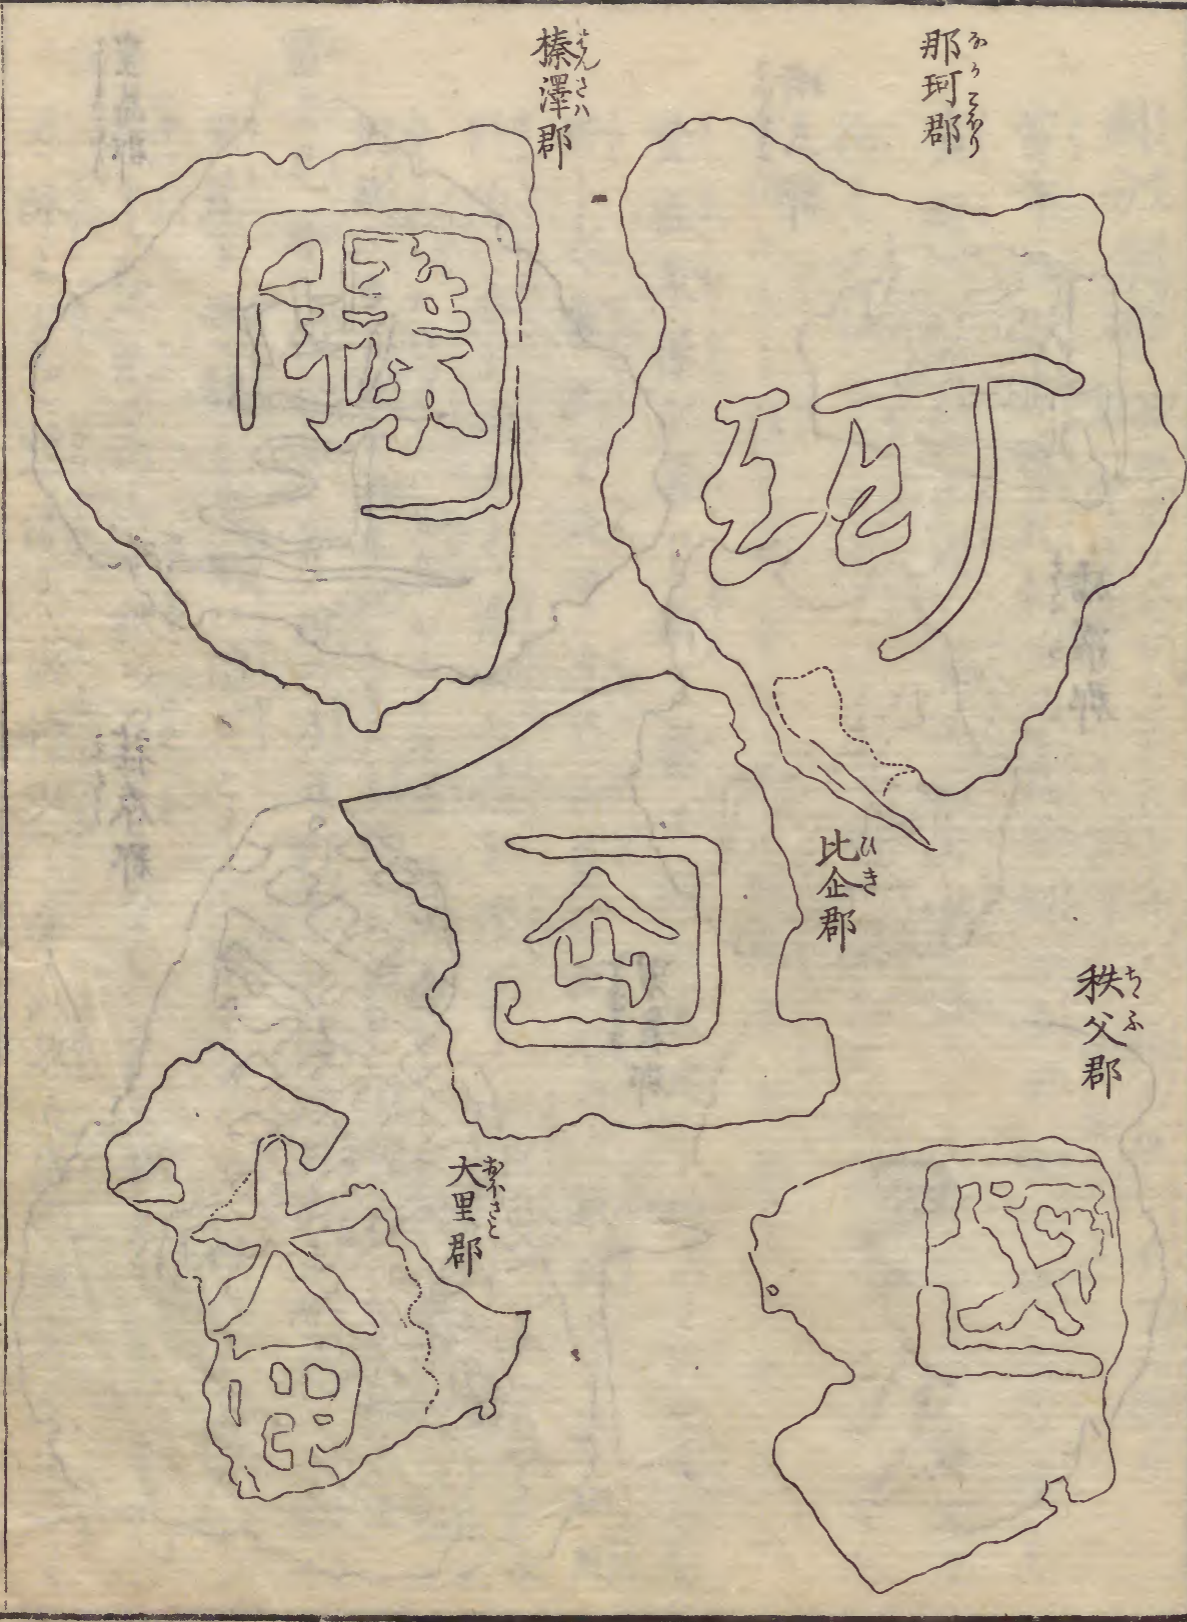 那珂郡
なかこほり
榛澤郡
はんさハ
珂
比企郡
ひき
企
秩父郡
ちゝふ
大里郡
おほさと
大里